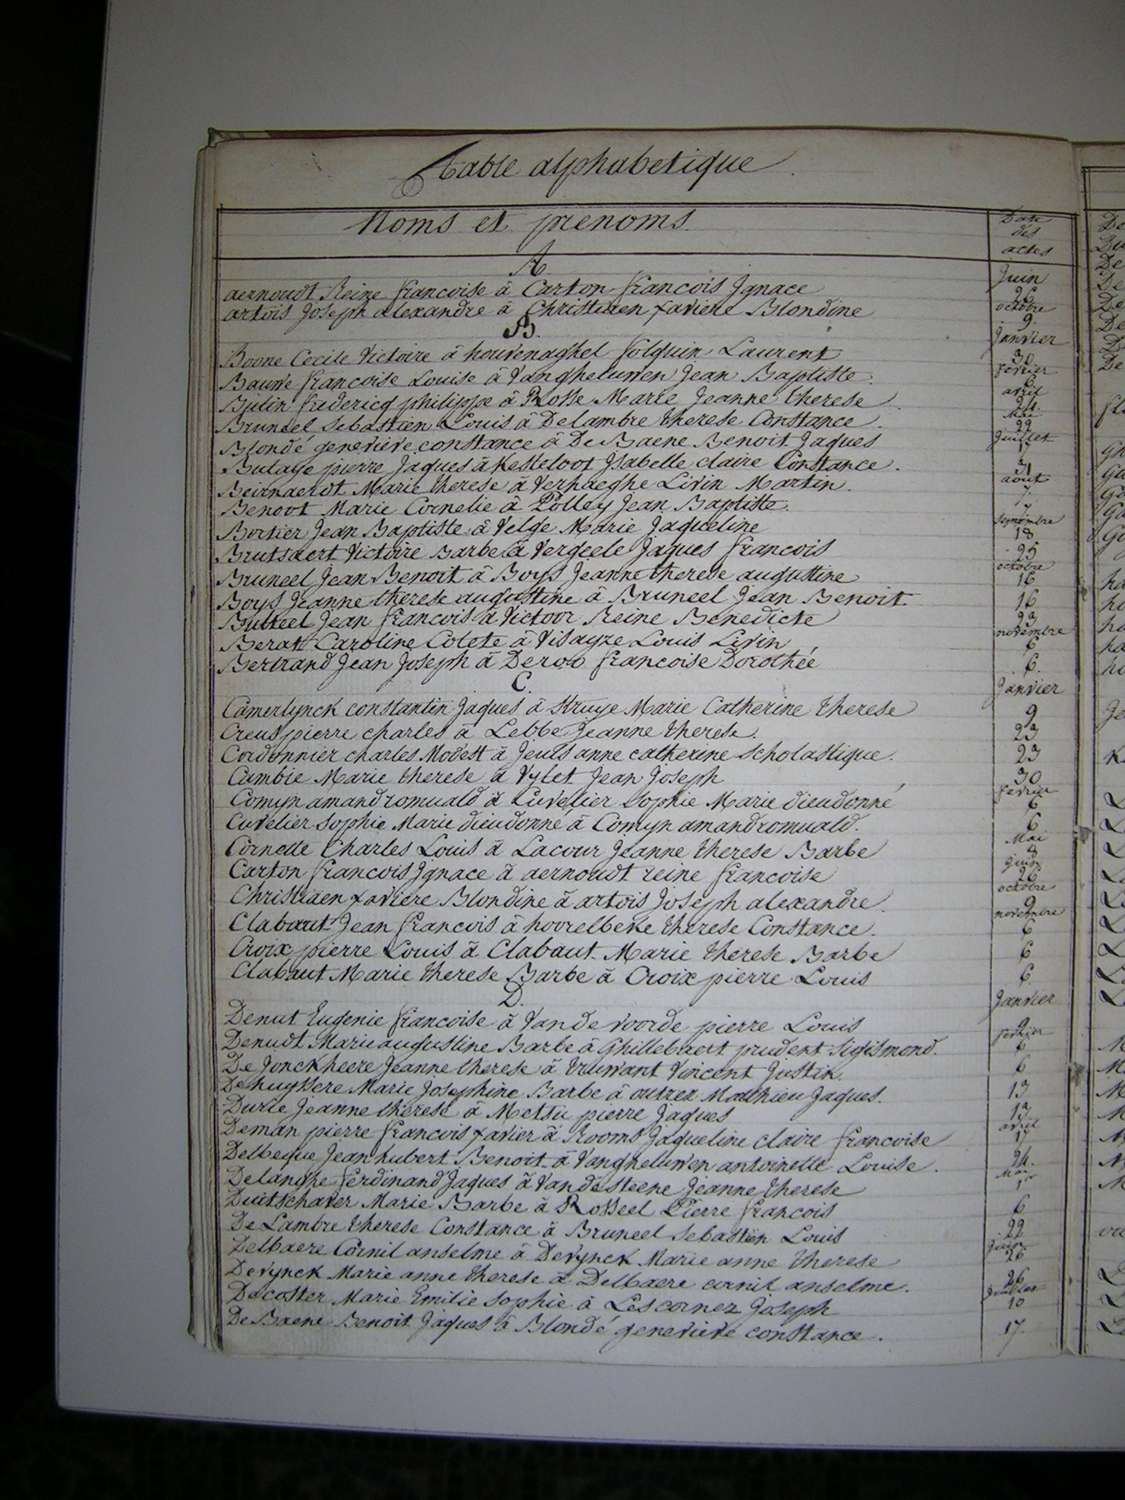 Table alphabetique
Noms et prenoms. Date des actes
A. Juin
aernoudt Reine francoise à Carton francois Jgnace 26 octobre
artois Joseph alexandre à Christiaen xaviere Blondine 9
B. Janvier
Boone Cecile Victoire à houvenaghel folquin Laurent 30 fevrier
Bauwe francoise Louise à Vangheluwen Jean Baptiste. 6 avril
philippe à Rosse Marie Jeanne therese Mai
Bruneel Sebastien Louis à Delambre therese Constance. 22 Juillet
Blondé genevieve constance à De Baene Benoit Jaques 17
pierre Jaques à Kesteloot Jsabelle claire Constance. 31 aout
Beirnaerdt Marie therese à Verhaeghe Livin Martin. 7
Benoot Marie Cornelie à Polley Jean Baptiste. 7 Septembre
Bortier Jean Baptiste à Velge Marie Jaqueline 18
Brutsaert Victoire Barbe à Vergeele Jaques francois 25 octobre
Bruneel Jean Benoit à Boys Jeanne therese augustine 16
Boys Jeanne therese augustine à Bruneel Jean Benoit. 16
Jean francois à Victoor Reine Benedicte 23 novembre
Berat Caroline Colete à Visayze Louis Livin 6
Bertrand Jean Joseph à Deroo francoise Dorothée 6.
C. Janvier
Camerlynck constantin Jaques à Struye Marie Catherine therese 9
Creus pierre charles à Lebbe Jeanne therese. 23
Cordonnier charles Modest à Jeuls anne catherine Scholastique. 23
Cambie Marie therese à Vylet Jean Joseph 30 fevrier
Comyn amand romuald à Cuvelier Sophie Marie dieudonné 6
Cuvelier Sophie Marie dieudonné à Comyn amand romuald. 6 Mai
Cornette Charles Louis à Lacour Jeanne therese Barbe Juin
Carton francois Jgnace à aernoudt reine francoise 26 octobre
Christiaen xaviere Blondine à artois Joseph alexandre. 9 novembre
Clabaut Jean francois à hoorelbeke therese Constance. 6
Croix pierre Louis à Clabaut Marie therese Barbe 6
Clabaut Marie therese Barbe à Croix pierre Louis 6
D. Janvier
Denut Eugenie francoise à Van de voorde pierre Louis 9 fevrier
Denudt Marie augustine Barbe à Ghillebaert prudent Sigismond. 6
De Jonckheere Jeanne therese à Vincent Justin. 6
Dehuysere Marie Josephine Barbe à outrez Mathieu Jaques. 13
Jeanne therese à Metsu pierre Jaques 13 avril
Deman pierre francois xavier à Rooms Jaqueline claire francoise 17
Delbeque Jean hubert Benoit à Vangheluwen antoinette Louise. 24. Mai
Delanghe Ferdinand Jaques à Van de steene Jeanne therese
Duitschaver Marie Barbe à Rosseel Pierre francois 6
De Lambre therese Constance à Bruneel Sebastien Louis 22 Juin
Delbaere Cornil anselme à Devynck Marie anne therese 26
Devynck Marie anne therese à Delbaere cornil anselme. 26 Juillet
Decoster Marie Emilie Sophie à Lescornez Joseph 10
De Baene Benoit Jaques à Blondé genevieve constance. 17.